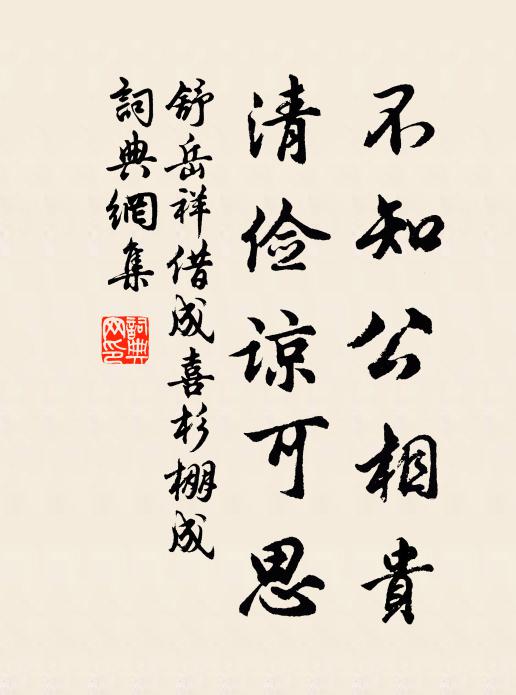 不知公相貴
清俭諒可思
舒岳祥借成喜杉棚成
詞典網集
詞典网印